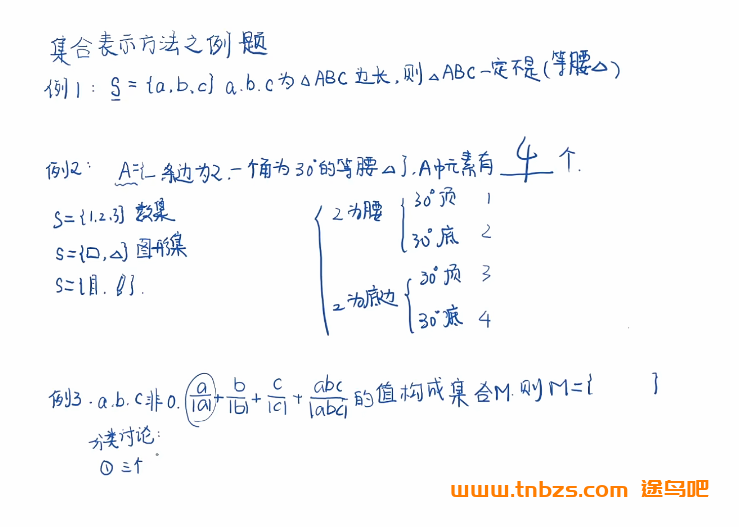 集合表示方法之例题
例1: S={a,b,c} a.b.c为△ABC边长,则△ABC一定不是(等腰△)
例2: A={一条边为2.一个角为30°的等腰△}.A中元素有 4 个.
S={1,2,3} 数集
S={□,△}图形集
S={
2为腰
30°顶 1
30°底 2
2为底边
30°顶 3
30°底 4
例3.a.b.c非0. a/|a|+b/|b|+c/|c|+abc/|abc|的值构成集合M.则M={ }
分类讨论:
①三个
www.tnbzs.com 途鸟吧